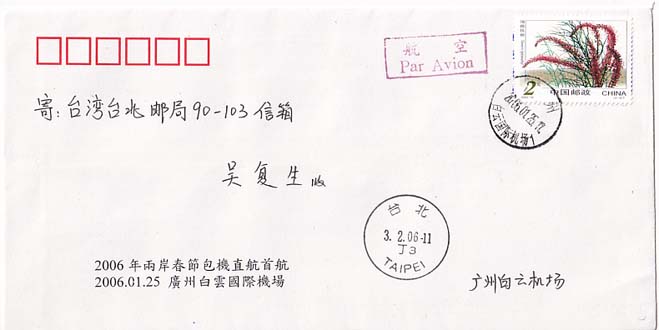 航 空
Par Avion
2
中国邮政 CHINA
寄：台湾台北邮局90-103信箱
2006.01.25.22
白云国际机场1
吴复生 收
台 北
3.2.06-11
丁3
TAIPEI
2006 年兩岸春節包機直航首航
2006.01.25 廣州白雲國際機場
广州白云机场